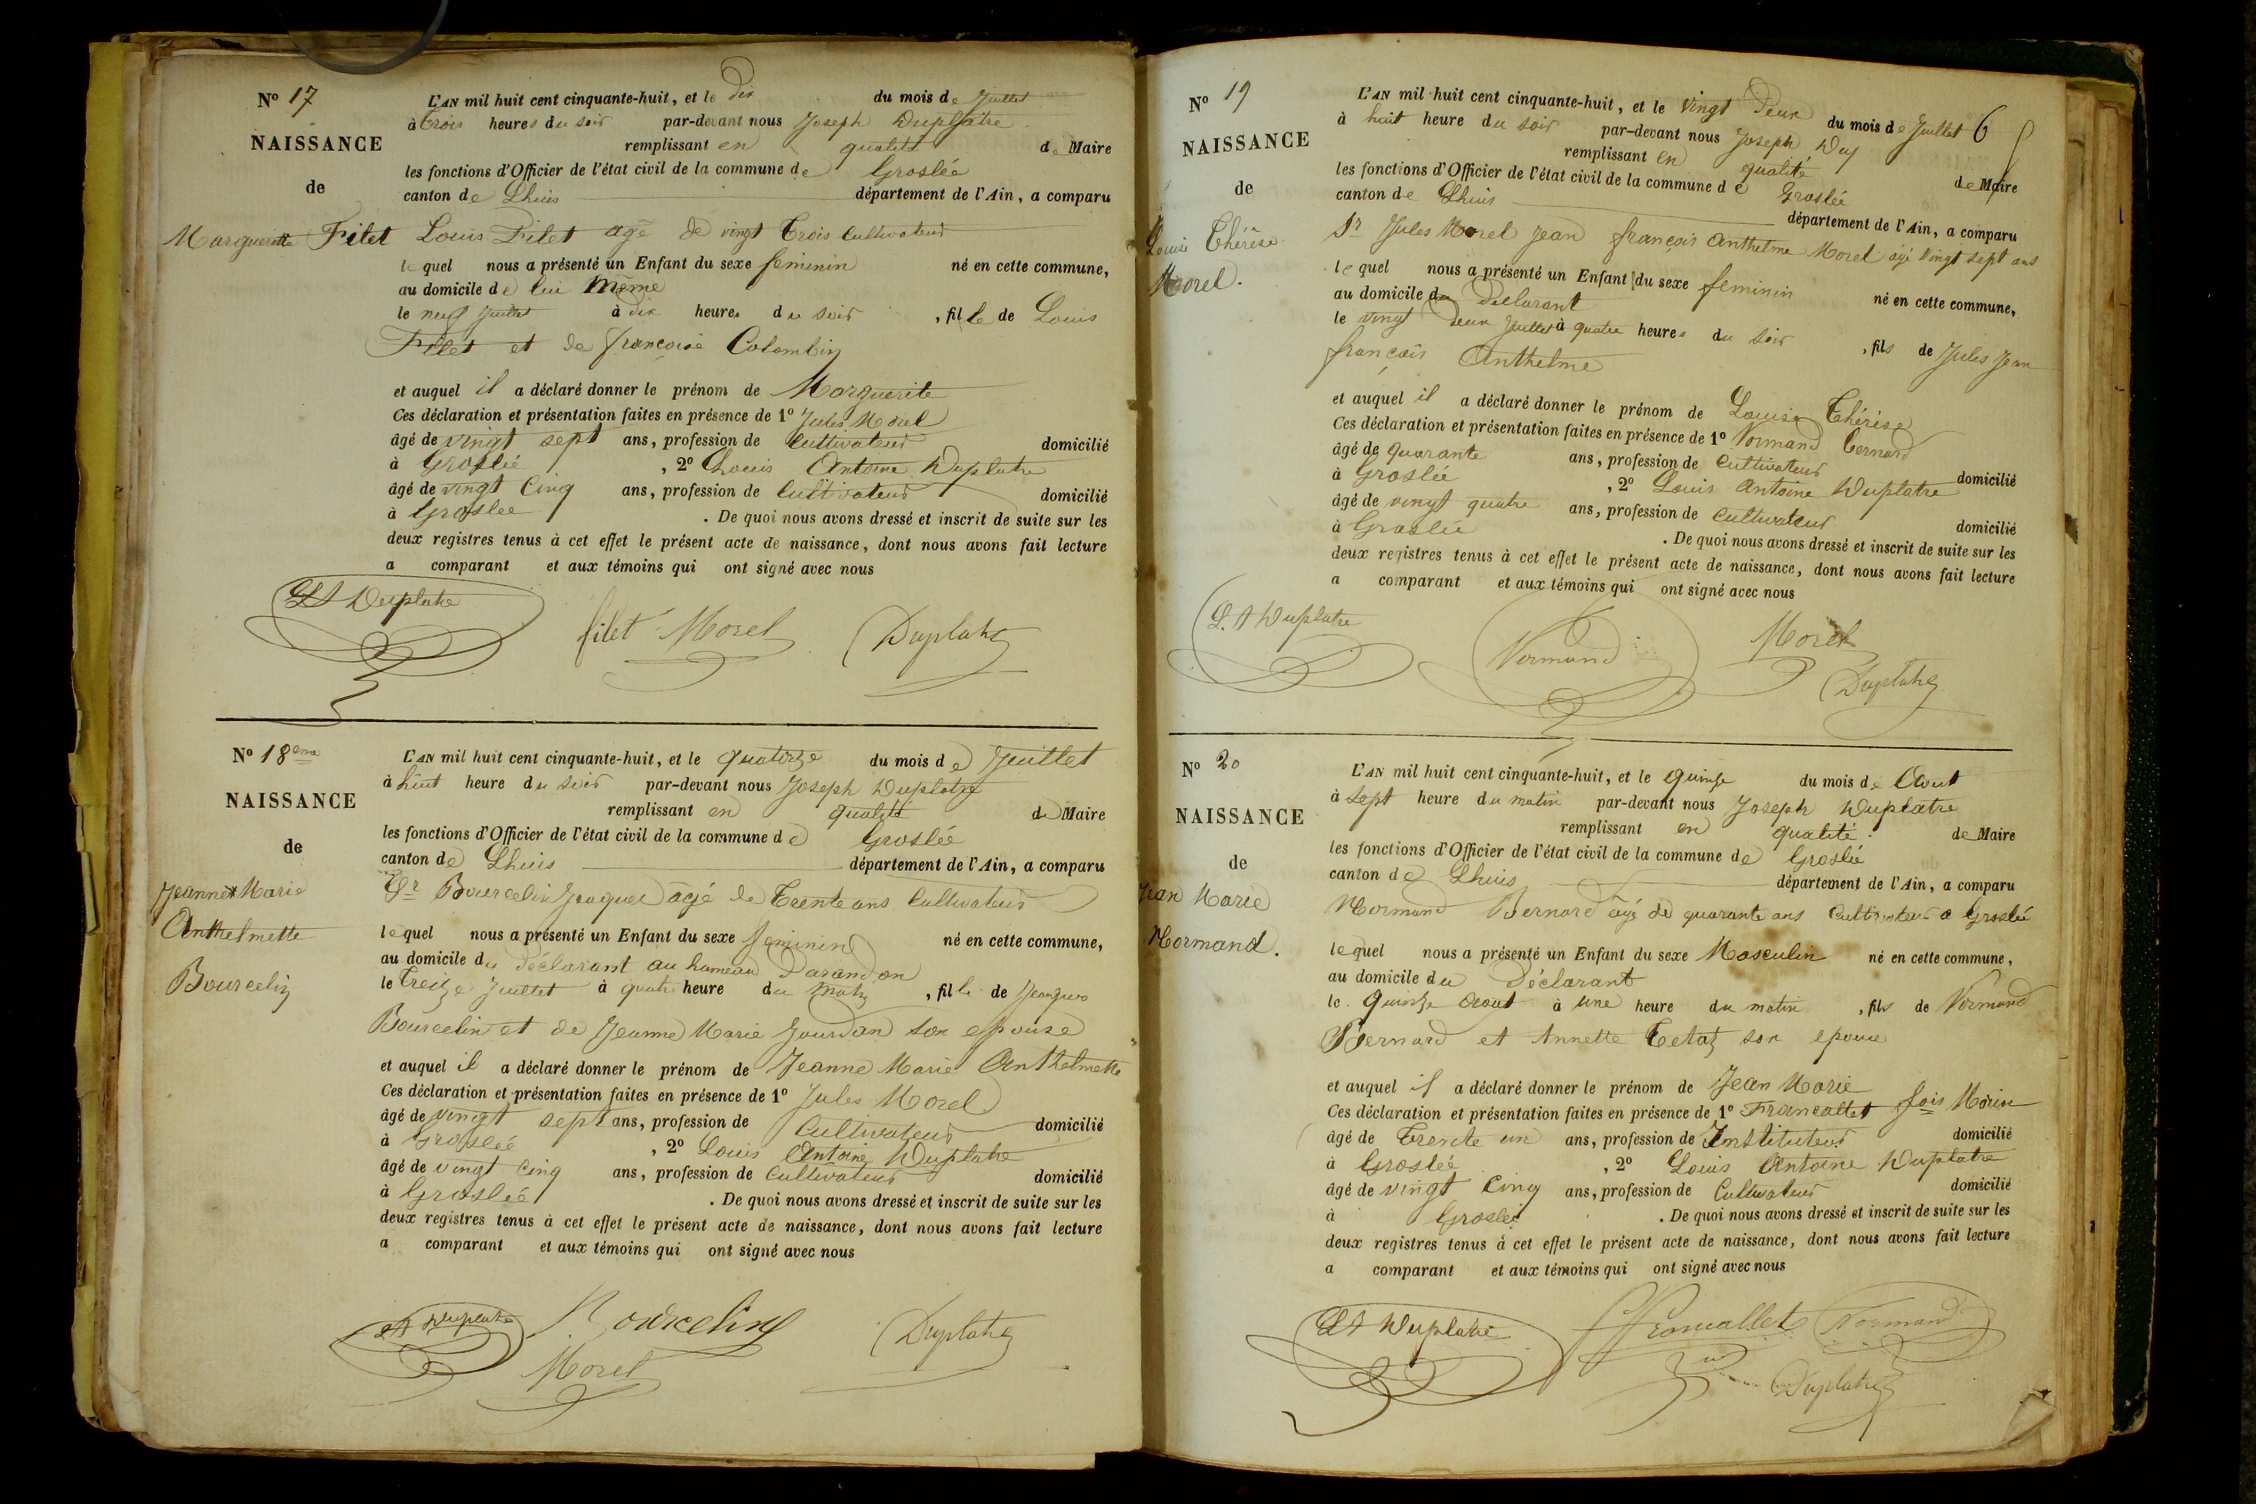 N° 17
NAISSANCE
de
Marguerite Filet
L'AN mil huit cent cinquante-huit, et le dix du mois de Juillet
à trois heures du soir par-devant nous Joseph Duplatre
remplissant en qualité de Maire
les fonctions d'Officier de l'état civil de la commune de Groslée
canton de Lhuis département de l'Ain, a comparu
Louis Filet agé de vingt trois Cultivateur
lequel nous a présenté un Enfant du sexe feminin né en cette commune,
au domicile de lui même
le neuf Juillet à dix heures du soir, fille de Louis
Filet et de françoise Colombin
et auquel il a déclaré donner le prénom de Marguerite
Ces déclaration et présentation faites en présence de 1° Jules Morel
âgé de vingt sept ans, profession de Cultivateur domicilié
à Groslée, 2° Louis Antoine Duplatre
âgé de vingt Cinq ans, profession de Cultivateur domicilié
à Groslée. De quoi nous avons dressé et inscrit de suite sur les
deux registres tenus à cet effet le présent acte de naissance, dont nous avons fait lecture
a comparant et aux témoins qui ont signé avec nous
LA Duplatre filet Morel Duplatre
N° 18eme
NAISSANCE
de
Jeanne Marie
Anthelmette
Bourcelin
L'AN mil huit cent cinquante-huit, et le quatorze du mois de Juillet
à huit heure du soir par-devant nous Joseph Duplatre
remplissant en qualité de Maire
les fonctions d'Officier de l'état civil de la commune de Groslée
canton de Lhuis département de l'Ain, a comparu
Sr Bourcelin Jacques agé de Trente ans Cultivateur
lequel nous a présenté un Enfant du sexe feminin né en cette commune,
au domicile du déclarant au hameau Darandon
le Treize Juillet à quatre heure du matin, fille de Jacques
Bourcelin et de Jeanne Marie Gourdan son epouse
et auquel il a déclaré donner le prénom de Jeanne Marie Anthelmette
Ces déclaration et présentation faites en présence de 1° Jules Morel
âgé de vingt sept ans, profession de Cultivateur domicilié
à Groslée, 2° Louis Antoine Duplatre
âgé de vingt cinq ans, profession de Cultivateur domicilié
à Groslée. De quoi nous avons dressé et inscrit de suite sur les
deux registres tenus à cet effet le présent acte de naissance, dont nous avons fait lecture
a comparant et aux témoins qui ont signé avec nous
LA Duplatre Bourcelin Duplatre
Morel
N° 19
NAISSANCE
de
Louise Thérèse
Morel.
L'AN mil huit cent cinquante-huit, et le Vingt Deux du mois de Juillet 6
à huit heure du soir par-devant nous Joseph Dup
remplissant en qualité de Maire
les fonctions d'Officier de l'état civil de la commune de Groslée
canton de Lhuis département de l'Ain, a comparu
Sr Jules Morel Jean françois Anthelme Morel agé Vingt sept ans
lequel nous a présenté un Enfant du sexe feminin né en cette commune,
au domicile du Déclarant
le vingt Deux Juillet à quatre heures du soir, fils de Jules Jean
français Anthelme
et auquel il a déclaré donner le prénom de Louise Thérèse
Ces déclaration et présentation faites en présence de 1° Normand Bernard
âgé de quarante ans, profession de Cultivateur domicilié
à Groslée, 2° Louis Antoine Duplatre
âgé de vingt quatre ans, profession de Cultivateur domicilié
à Groslée. De quoi nous avons dressé et inscrit de suite sur les
deux registres tenus à cet effet le présent acte de naissance, dont nous avons fait lecture
a comparant et aux témoins qui ont signé avec nous
L.A Duplatre Normand Morel
Duplatre
N° 20
NAISSANCE
de
Jean Marie
Normand.
L'AN mil huit cent cinquante-huit, et le quinze du mois de Aout
à sept heure du matin par-devant nous Joseph Duplatre
remplissant en qualité de Maire
les fonctions d'Officier de l'état civil de la commune de Groslée
canton de Lhuis département de l'Ain, a comparu
Normand Bernard agé de quarante ans Cultivateur a Groslée
lequel nous a présenté un Enfant du sexe Masculin né en cette commune,
au domicile du Déclarant
le quinze Aout à une heure du matin, fils de Normand
Bernard et Annette Tetaz son epouse
et auquel il a déclaré donner le prénom de Jean Marie
Ces déclaration et présentation faites en présence de 1° Francallet fois Marie
âgé de Trente un ans, profession de Instituteur domicilié
à Groslée, 2° Louis Antoine Duplatre
âgé de vingt cinq ans, profession de Cultivateur domicilié
à Groslée. De quoi nous avons dressé et inscrit de suite sur les
deux registres tenus à cet effet le présent acte de naissance, dont nous avons fait lecture
a comparant et aux témoins qui ont signé avec nous
LA Duplatre Francallet Normand
Duplatre